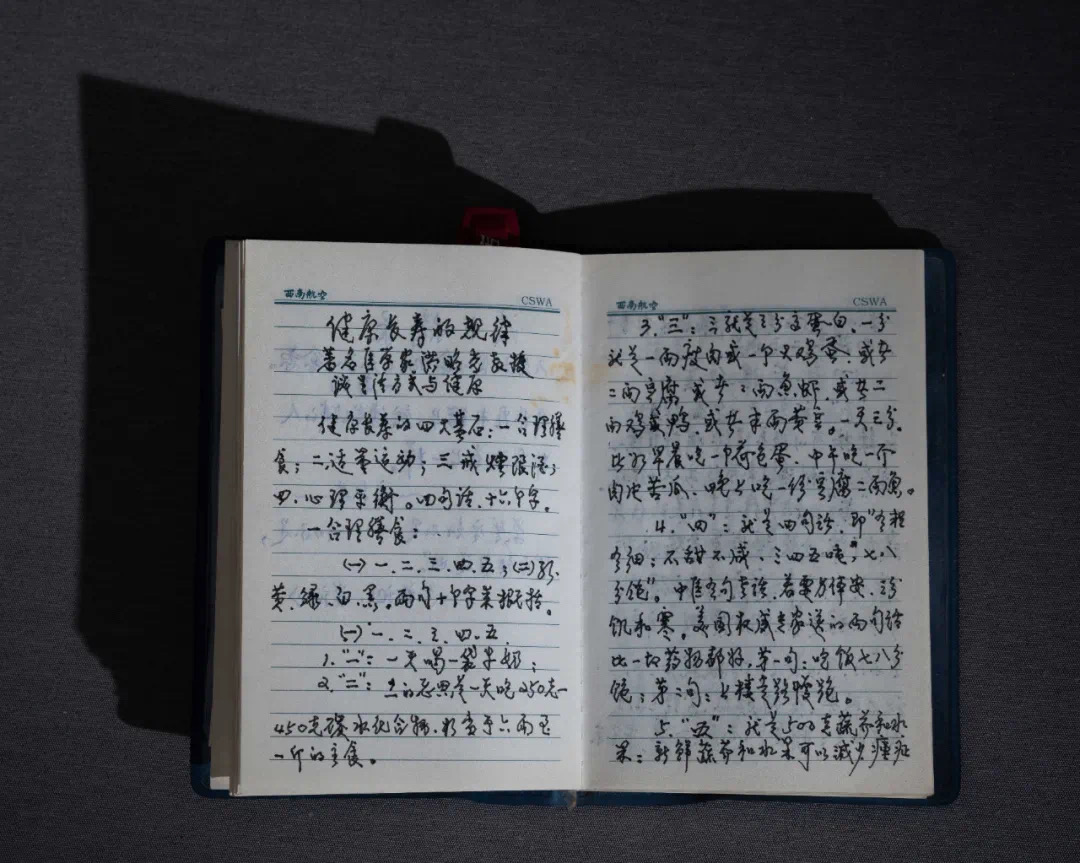 西南航空 CSWA
健康长寿的规律
著名医学家洪昭光教授
谈生活方式与健康
健康长寿的四大基石：一合理膳
食；二适量运动；三戒烟限酒；
四、心理平衡。四句话、十六个字。
一合理膳食：
(一)一、二、三、四、五；(二)红、
黄、绿、白、黑。两句十个字来概括。
(一)一、二、三、四、五、
1."一"：一天喝一袋牛奶；
2."二"：二的意思是一天吃250克—
450克碳水化合物，相当于六两至
一斤的主食。
西南航空 CSWA
3."三"：三就是三分高蛋白、一分
就是一两瘦肉或一个大鸡蛋、或者
二两豆腐、或者二两鱼虾、或者二
两鸡或鸭、或者半两黄豆。一天三分。
比如早晨吃一个荷包蛋、中午吃一个
肉片苦瓜、晚上吃一份豆腐二两鱼。
4."四"：就是四句话，即"有粗
有细；不甜不咸、三四五顿；七八
分饱"。中医有句老话，若要身体安、三分
饥和寒。美国权威专家送的两句话
比一切药物都好，第一句：吃饭七八分
饱；第二句：上楼走路慢跑。
5."五"：就是500克蔬菜和水
果：新鲜蔬菜和水果可以减少癌症